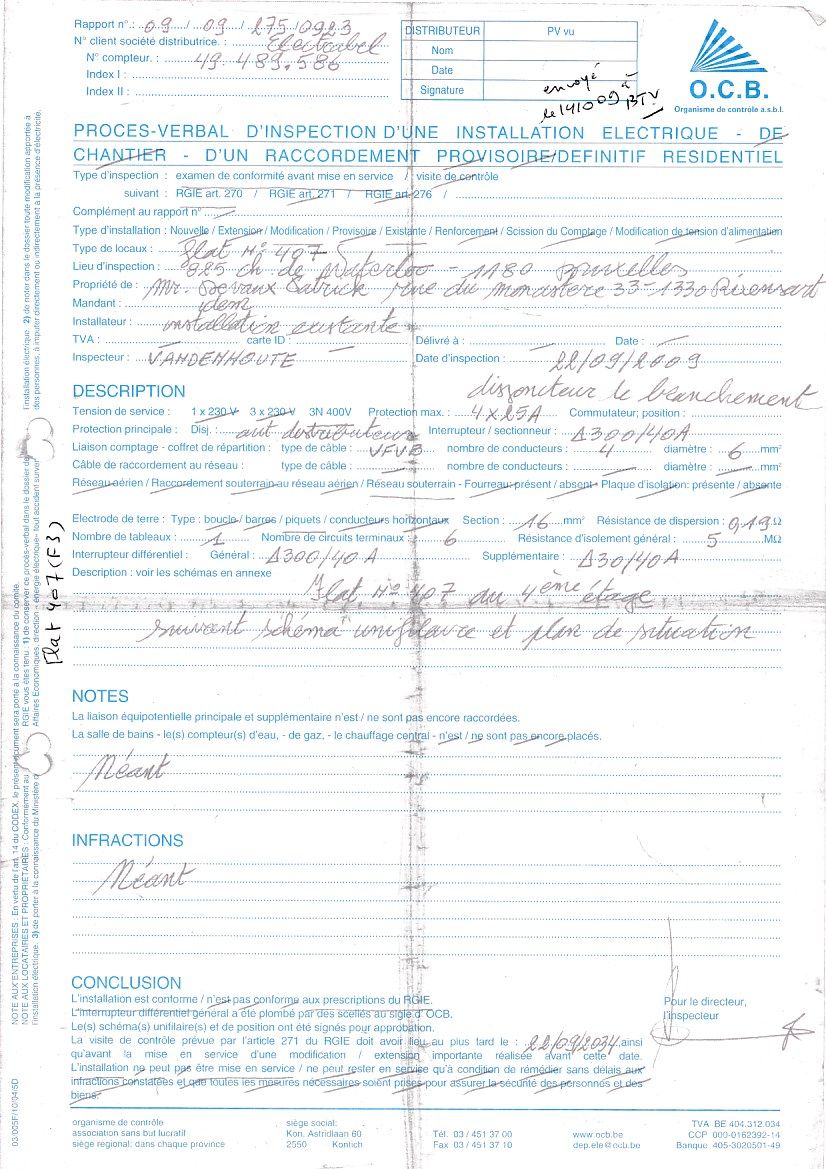 Rapport n°.: 09 / 09 / 275 / 0923
N° client société distributrice. : Electrabel
N° compteur. : 49.489.586
Index I :
Index II :
DISTRIBUTEUR PV vu
Nom
Date
Signature
envoyé à
le 141009 BTV
O.C.B.
Organisme de contrôle a.s.b.l.
PROCES-VERBAL D'INSPECTION D'UNE INSTALLATION ELECTRIQUE - DE
CHANTIER - D'UN RACCORDEMENT PROVISOIRE/DEFINITIF RESIDENTIEL
Type d'inspection : examen de conformité avant mise en service / visite de contrôle
suivant : RGIE art. 270 / RGIE art. 271 / RGIE art. 276 /
Complément au rapport n°
Type d'installation : Nouvelle / Extension / Modification / Provisoire / Existante / Renforcement / Scission du Comptage / Modification de tension d'alimentation
Type de locaux : flat N° 407
Lieu d'inspection : 925 ch. de Waterloo - 1180 Bruxelles
Propriété de : Mr. Devaux Patrick rue du monastère 33-1330 Rixensart
Mandant : idem
Installateur : installation existante
TVA : carte ID : Délivré à : Date :
Inspecteur : VANDENHOUTE Date d'inspection : 22/09/2009
DESCRIPTION disjoncteur le branchement
Tension de service : 1 x 230 V 3 x 230 V 3N 400V Protection max. : 4 x 25A Commutateur; position :
Protection principale : Disj. : aut distributeur Interrupteur / sectionneur : Δ300/40A
Liaison comptage - coffret de répartition : type de câble : VFVB nombre de conducteurs : 4 diamètre : 6 mm²
Câble de raccordement au réseau : type de câble : nombre de conducteurs : diamètre : mm²
Réseau aérien / Raccordement souterrain au réseau aérien / Réseau souterrain - Fourreau: présent / absent - Plaque d'isolation: présente / absente
Electrode de terre : Type : boucle / barres / piquets / conducteurs horizontaux Section : 16 mm² Résistance de dispersion : 0,19 Ω
Nombre de tableaux : 1 Nombre de circuits terminaux : 6 Résistance d'isolement général : 5 MΩ
Interrupteur différentiel : Général : Δ300/40A Supplémentaire : Δ30/40A
Description : voir les schémas en annexe
Flat N° 407 au 4ème étage
suivant schéma unifilaire et plan de situation
NOTES
La liaison équipotentielle principale et supplémentaire n'est / ne sont pas encore raccordées.
La salle de bains - le(s) compteur(s) d'eau, - de gaz, - le chauffage central - n'est / ne sont pas encore placés.
Néant
INFRACTIONS
Néant
CONCLUSION
L'installation est conforme / n'est pas conforme aux prescriptions du RGIE.
L'interrupteur différentiel général a été plombé par des scellés au sigle d' OCB.
Le(s) schéma(s) unifilaire(s) et de position ont été signés pour approbation.
La visite de contrôle prévue par l'article 271 du RGIE doit avoir lieu au plus tard le : 22/09/2034 ainsi
qu'avant la mise en service d'une modification / extension importante réalisée avant cette date.
L'installation ne peut pas être mise en service / ne peut rester en service qu'à condition de remédier sans délais aux
infractions constatées et que toutes les mesures nécessaires soient prises pour assurer la sécurité des personnes et des
biens.
Pour le directeur,
l'inspecteur
organisme de contrôle
association sans but lucratif
siège regional; dans chaque province
siège social:
Kon. Astridlaan 60
2550 Kontich
Tél. 03 / 451 37 00
Fax 03 / 451 37 10
www.ocb.be
dep.ele@ocb.be
TVA BE 404.312.034
CCP 000-0162392-14
Banque 405-3020501-49
flat 407 (F3)
NOTE AUX ENTREPRISES : En vertu de l'art. 14 du CODEX, le présent document sera porté à la connaissance du comité.
NOTE AUX LOCATAIRES ET PROPRIETAIRES : Conformément au RGIE vous êtes tenu. 1) de conserver ce procès-verbal dans le dossier de
l'installation électrique. 2) de noter dans le dossier toute modification apportée à
l'installation électrique. 3) de porter à la connaissance du Ministère Affaires Economiques, direction « énergie électrique» tout accident survenu
des personnes, à imputer directement ou indirectement à la présence d'électricité.
03/005F/10/04/5D